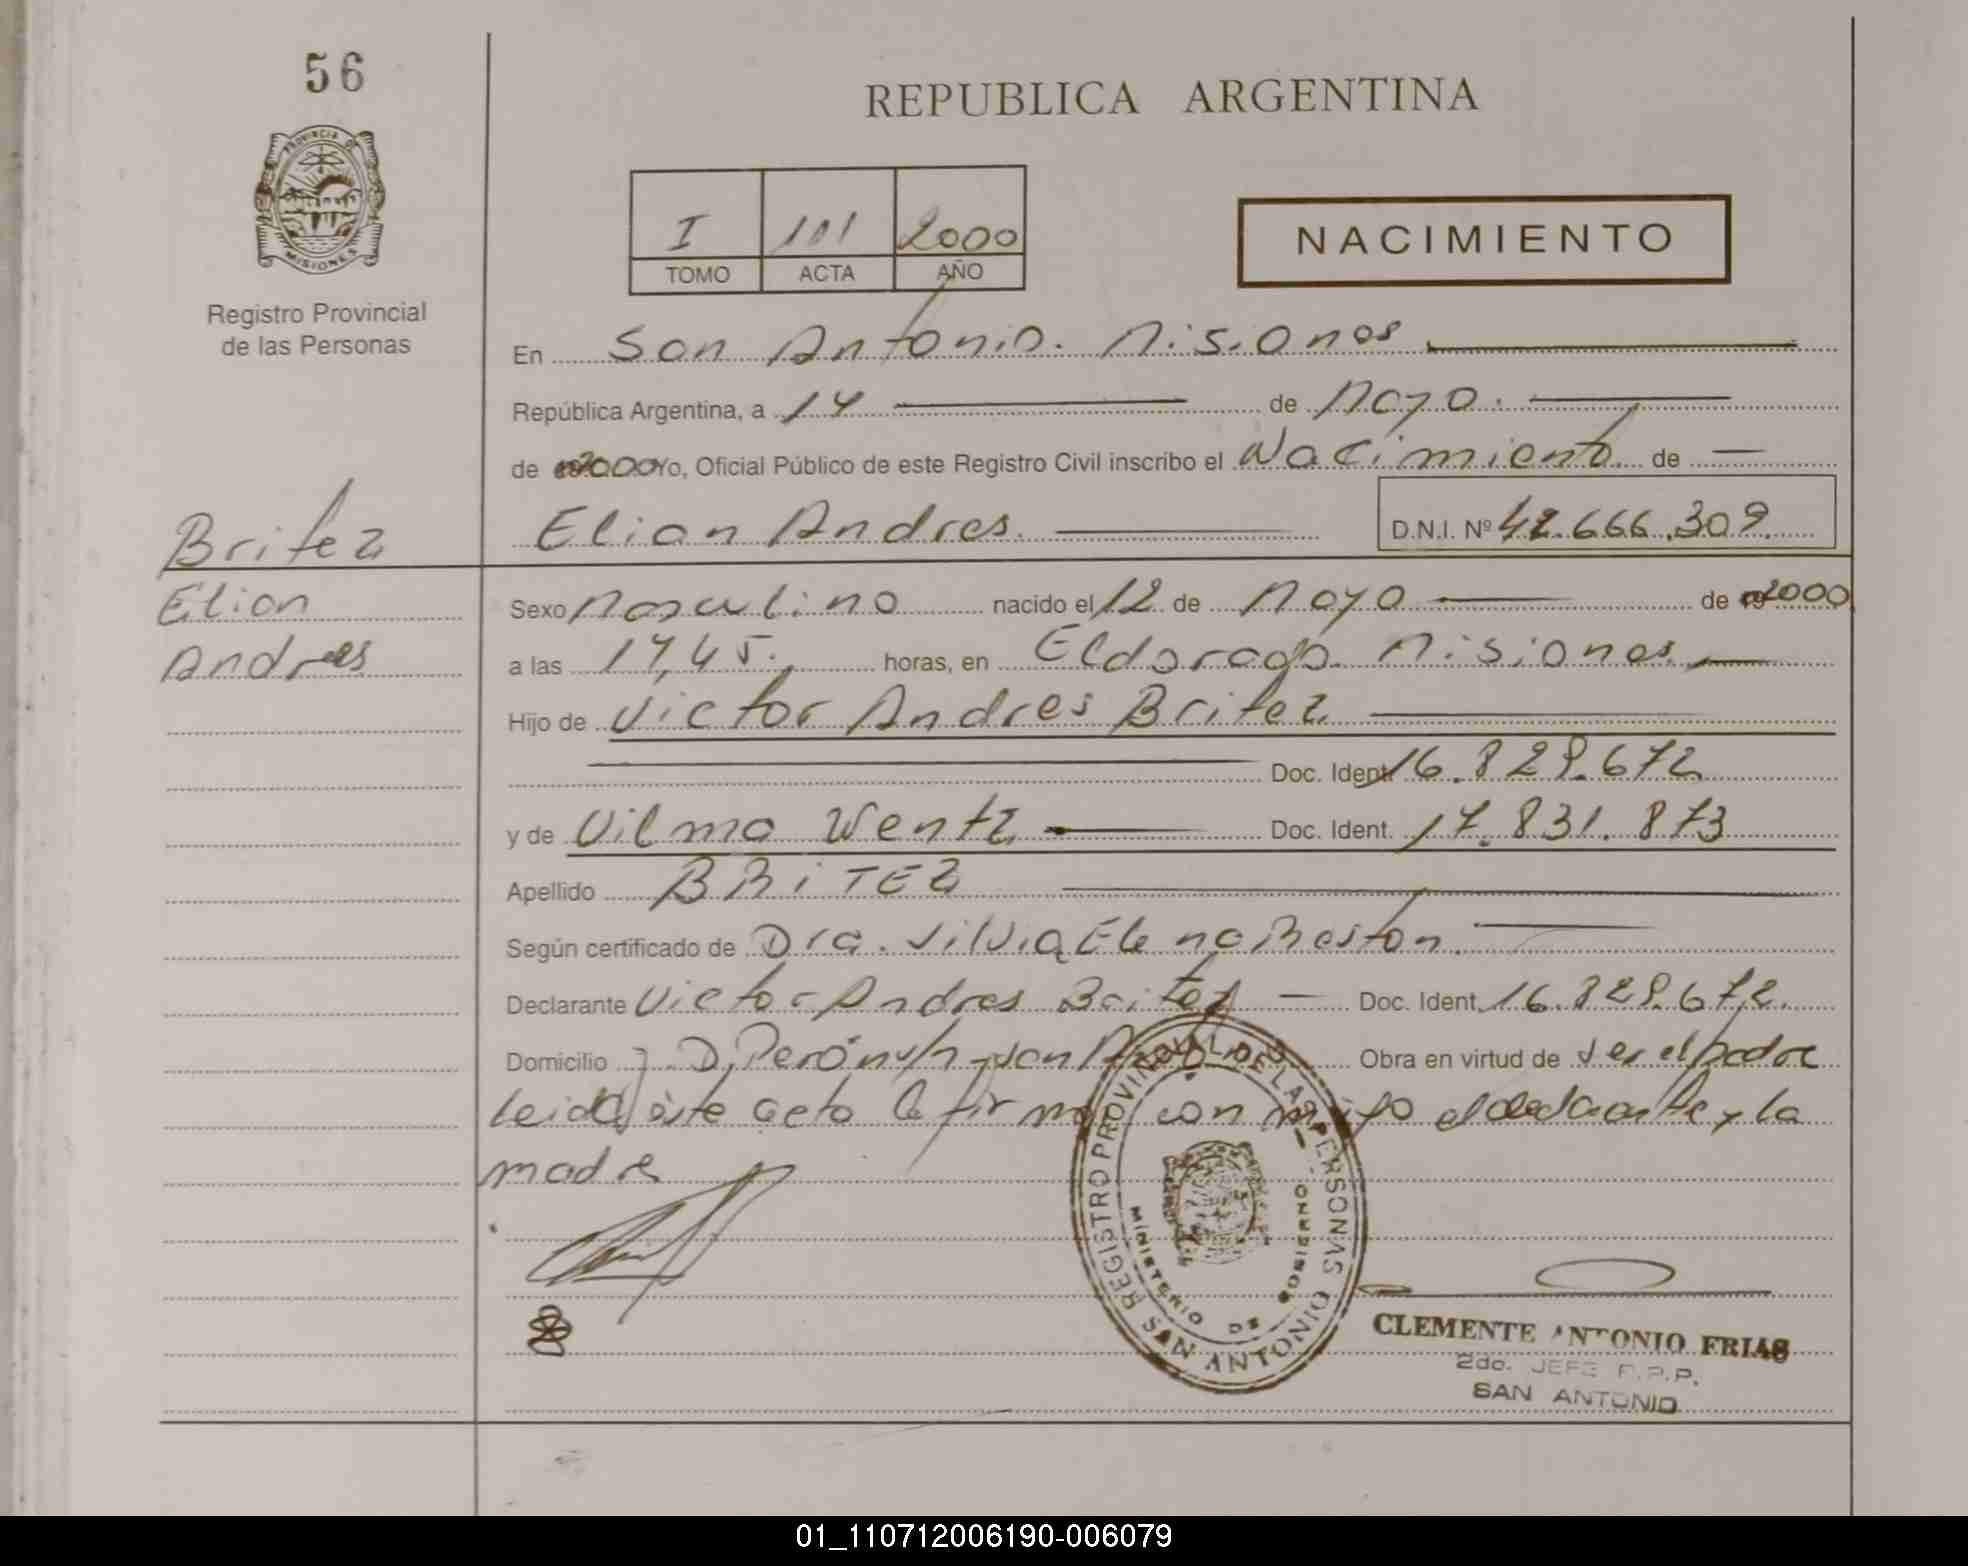 56
PROVINCIA DE
MISIONES
Registro Provincial
de las Personas
REPUBLICA ARGENTINA
I 101 2000
TOMO ACTA AÑO
NACIMIENTO
En San Antonio. Misiones
República Argentina, a 14 de Mayo.
de 2000 Yo, Oficial Público de este Registro Civil inscribo el Nacimiento de
Elian Andres. D.N.I. Nº 42.666.309.
Britez
Elian
Andres
Sexo Masculino nacido el 12 de Mayo de 2000
a las 17,45. horas, en Eldorado. Misiones
Hijo de Victor Andres Britez
Doc. Ident. 16.829.672
y de Vilma Wentz Doc. Ident. 17.831.873
Apellido BRITEZ
Según certificado de Dra. Silvia Elena Beston.
Declarante Victor Andres Britez Doc. Ident. 16.829.672.
Domicilio J. D. Perón s/n San Obra en virtud de Ser el padre
Leida este acta la firma con el declarante y la
madre
REGISTRO PROVINCIAL DE LAS PERSONAS
MINISTERIO DE GOBIERNO
SAN ANTONIO
CLEMENTE ANTONIO FRIAS
2do. JEFE R.P.P.
SAN ANTONIO
01_110712006190-006079